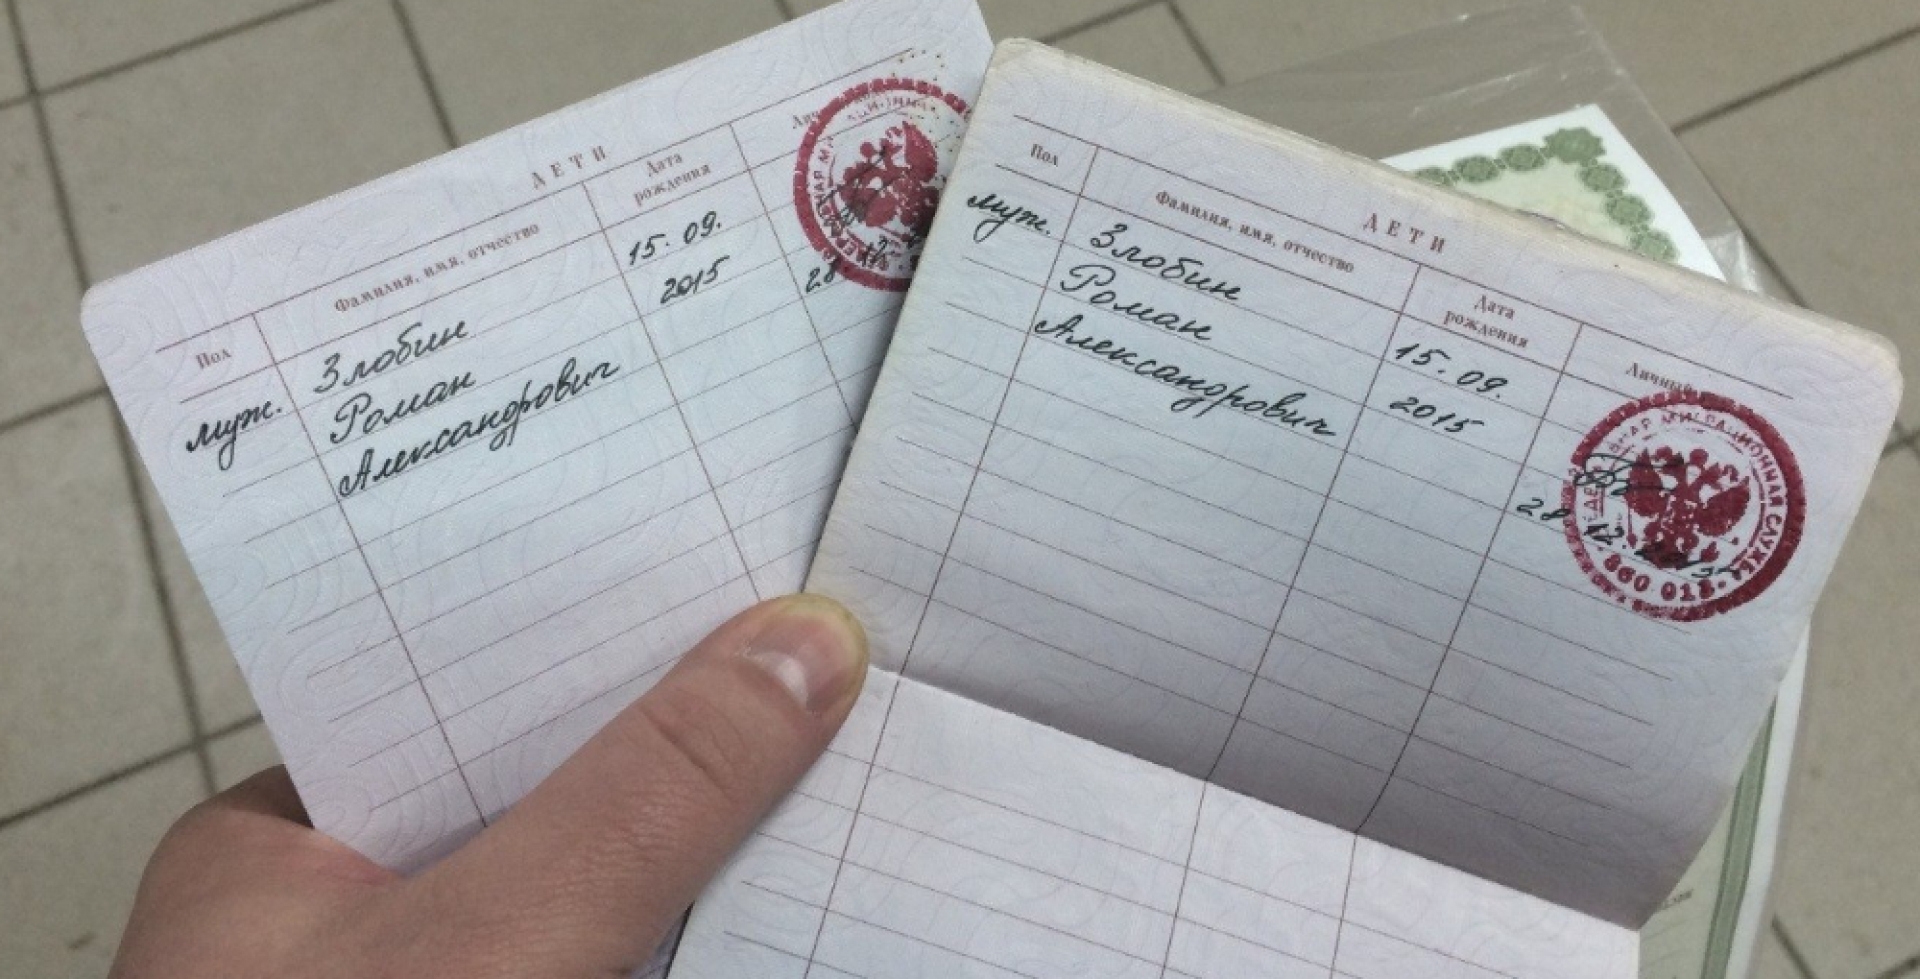 ДЕТИ
Пол
Фамилия, имя, отчество
Дата
рождения
муж.
Злобин
Роман
Александрович
15. 09.
2015
28
ДЕТИ
Пол
Фамилия, имя, отчество
Дата
рождения
Личный
муж.
Злобин
Роман
Александрович
15. 09.
2015
28 12. 2015
МИГРАЦИОННАЯ СЛУЖБА
860 018